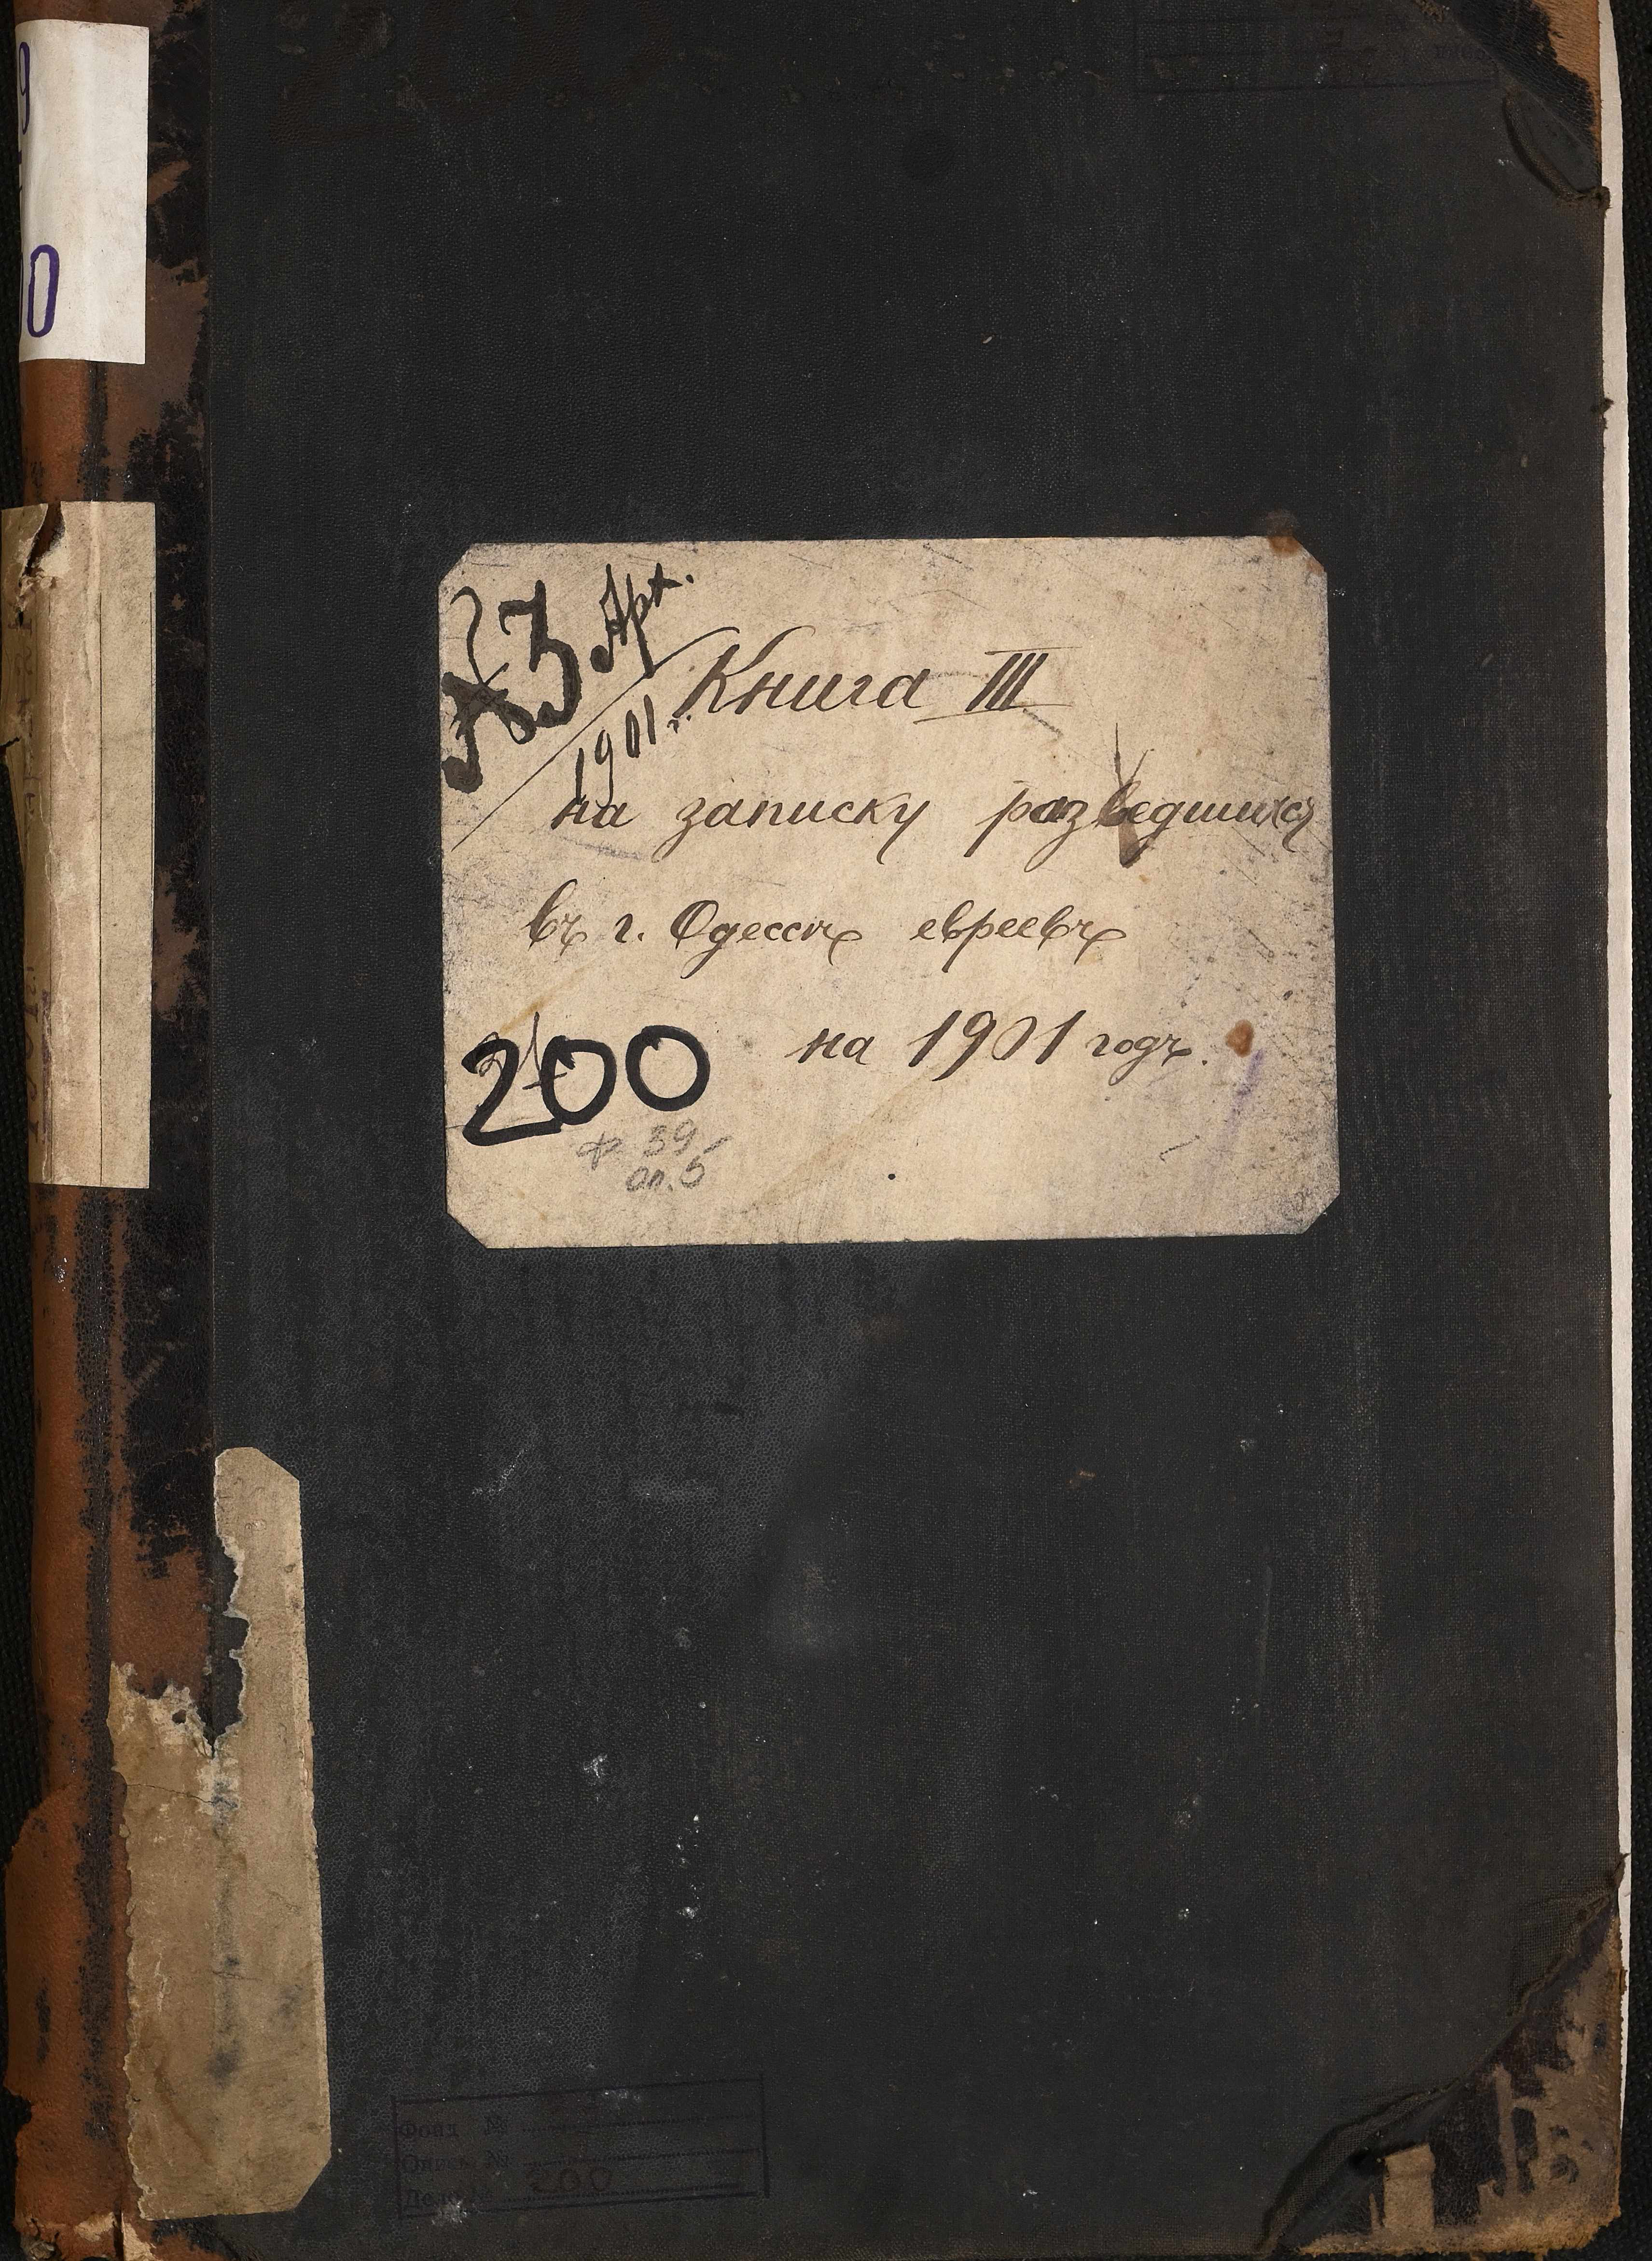 9
0
№ 3 Арх.
1901 г.
Книга III
на записку разведшихся
въ г. Одессѣ евреевъ
на 1901 годъ.
200
ф. 39
оп. 5
Фонд №
Опись №
Дело № 200